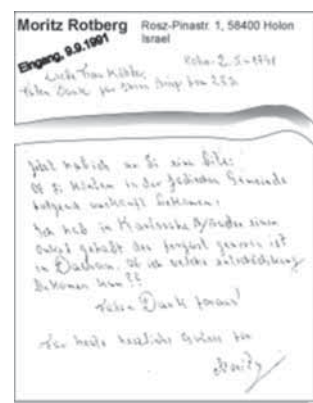 Moritz Rotberg Rosz-Pinastr. 1, 58400 Holon
Israel
Eingang, 9.9.1991
Holon 2.5.1991
Liebe Frau
Vielen Dank für Ihren Brief von 25.2
Jetzt habich an Si eine Bite:
Ob Si könten in der Jüdischen Gemeinde
folgend auskunft bekomen:
Ich hab in Karlsruhe Gründer einen
Onkel gehabt der gewesen ist
in Dachau. Ob ich welche entschödikung
bekomen kan ??
Vielen Dank foraus!
Für heute herzliche Grüsse von
Moritz